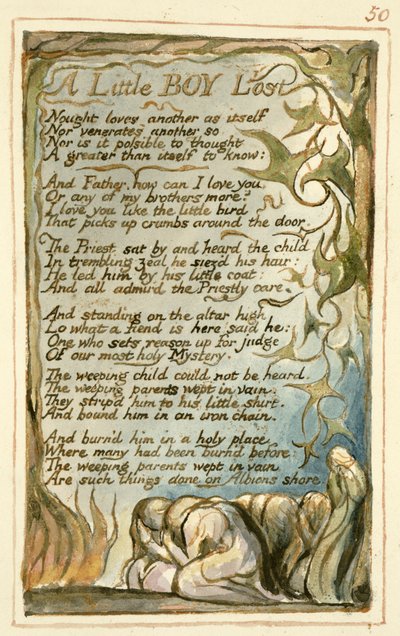 50
A Little BOY Lost
Nought loves another as itself
Nor venerates another so
Nor is it possible to thought
A greater than itself to know:
And Father, how can I love you,
Or any of my brothers more?
I love you like the little bird
That picks up crumbs around the door.
The Priest sat by and heard the child
In trembling zeal he siez'd his hair:
He led him by his little coat:
And all admir'd the Priestly care.
And standing on the altar high
Lo what a fiend is here said he:
One who sets reason up for judge
Of our most holy Mystery.
The weeping child could not be heard.
The weeping parents wept in vain:
They strip'd him to his little shirt.
And bound him in an iron chain.
And burn'd him in a holy place,
Where many had been burn'd before:
The weeping parents wept in vain.
Are such things done on Albions shore.